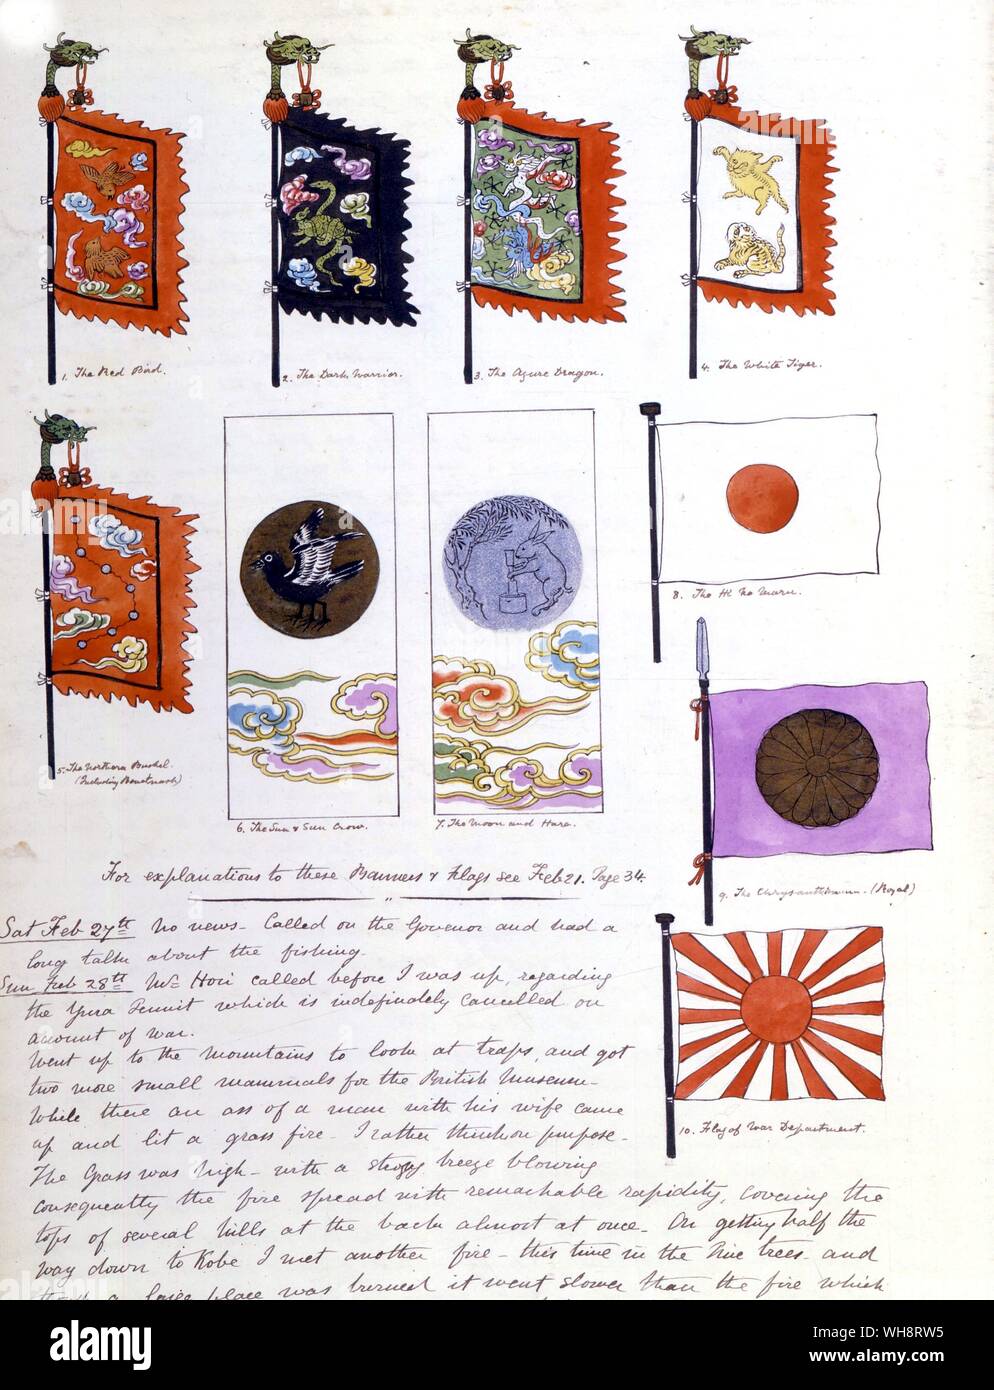 1. The Red Bird.
2. The Dark Warrior.
3. The Azure Dragon.
4. The White Tiger.
5. The Northern Bushel.
(Including Bootmark)
6. The Sun & Sun Crow.
7. The Moon and Hare.
8. The Hi No Maru.
9. The Chrysanthemum. (Royal)
10. Flag of War Department.
For explanations to these Banners & Flags see Feb 21. Page 34.
Sat Feb 27th No news - Called on the Govenor and had a
long talk about the fishing.
Sun Feb 28th Mr Hori called before I was up, regarding
the Yura Permit which is indefinately cancelled on
account of war.
Went up to the mountains to look at traps, and got
two more small mammals for the British Museum -
While there an ass of a man with his wife came
up and lit a grass fire - I rather think on purpose -
The Grass was high - with a strong breeze blowing
consequently the fire spread with remarkable rapidity, covering the
tops of several hills at the back almost at once - On getting half the
way down to Kobe I met another fire - this time in the Pine trees - and
a large place was burned it went slower than the fire which
alamy
WH8RW5
www.alamy.com